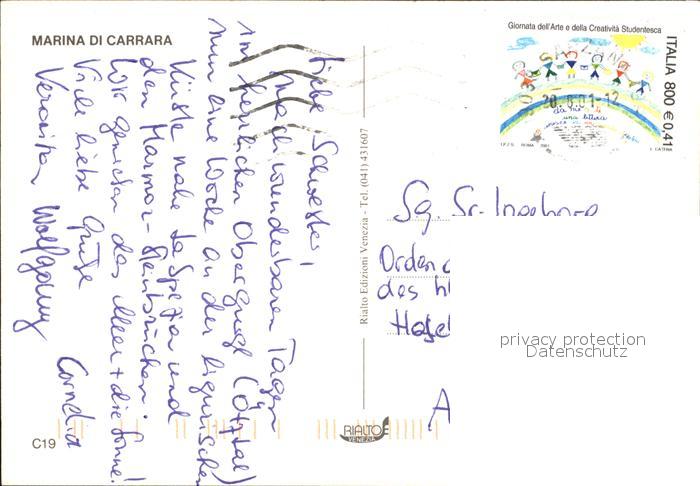 MARINA DI CARRARA
Liebe Schwester!
Nach wunderbaren Tagen
im herrlichen Obergurgl (Ötztal)
nun eine Woche an der ligurischen
Küste nahe La Spezia und
den Marmor-Steinbrüchen.
Wir genießen das Meer + die Sonne!
Viele liebe Grüße
Veronika Wolfgang
Cornelia
C19
Rialto Edizioni Venezia - Tel. (041) 431607
RIALTO
VENEZIA
Giornata dell'Arte e della Creatività Studentesca
ITALIA 800 € 0,41
una lettera
I.P.Z.S. ROMA 2001
20.6.01-12
Sg. Sr. Ingeborg
Orden
des hl
privacy protection
Datenschutz
A